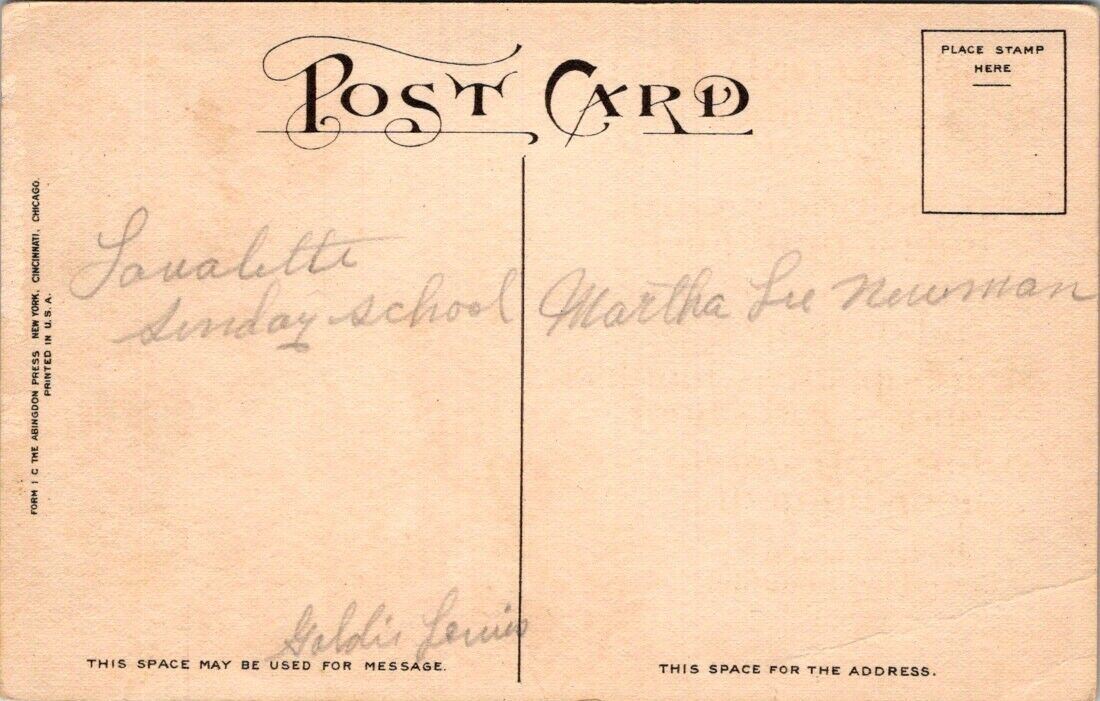 POST CARD
PLACE STAMP
HERE
FORM 1 C THE ABINGDON PRESS NEW YORK, CINCINNATI, CHICAGO.
PRINTED IN U.S.A.
Lavalette
Sunday school
Martha Lee Newman
Goldie Lewis
THIS SPACE MAY BE USED FOR MESSAGE.
THIS SPACE FOR THE ADDRESS.